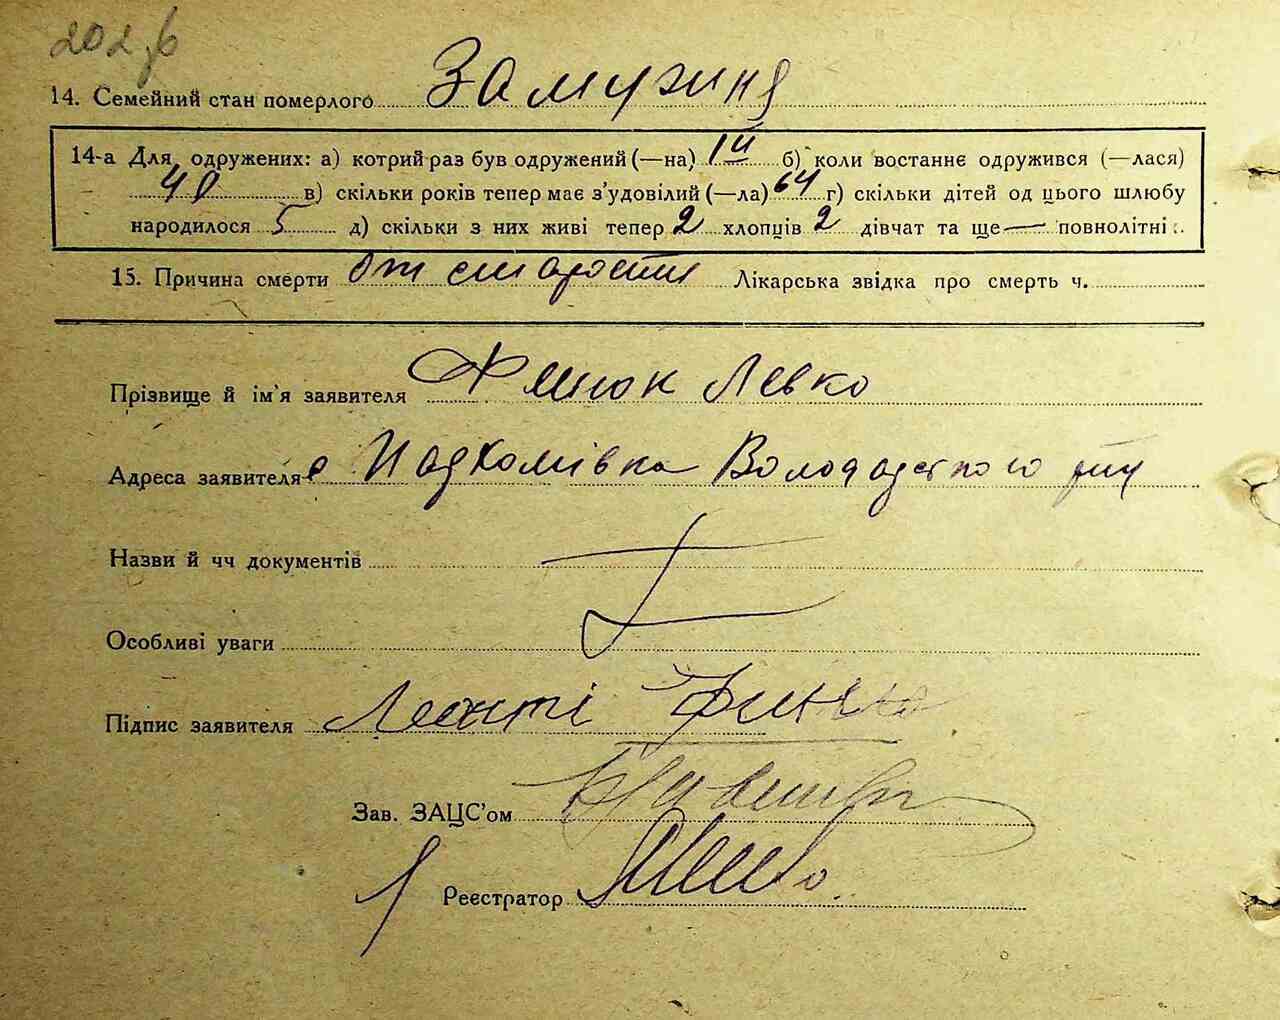 202
14. Семейний стан померлого Замужня
14-а Для одружених: а) котрий раз був одружений (—на) 1й б) коли востаннє одружився (—лася)
40 в) скільки років тепер має з'удовілий (—ла) 64 г) скільки дітей од цього шлюбу
народилося 5 д) скільки з них живі тепер 2 хлопців 2 дівчат та ще — повнолітні
15. Причина смерти от старости Лікарська звідка про смерть ч.
Прізвище й ім'я заявителя Левко
Адреса заявителя с Володарського
Назви й чч документів
Особливі уваги
Підпис заявителя Леонті
Зав. ЗАЦС'ом
Реєстратор